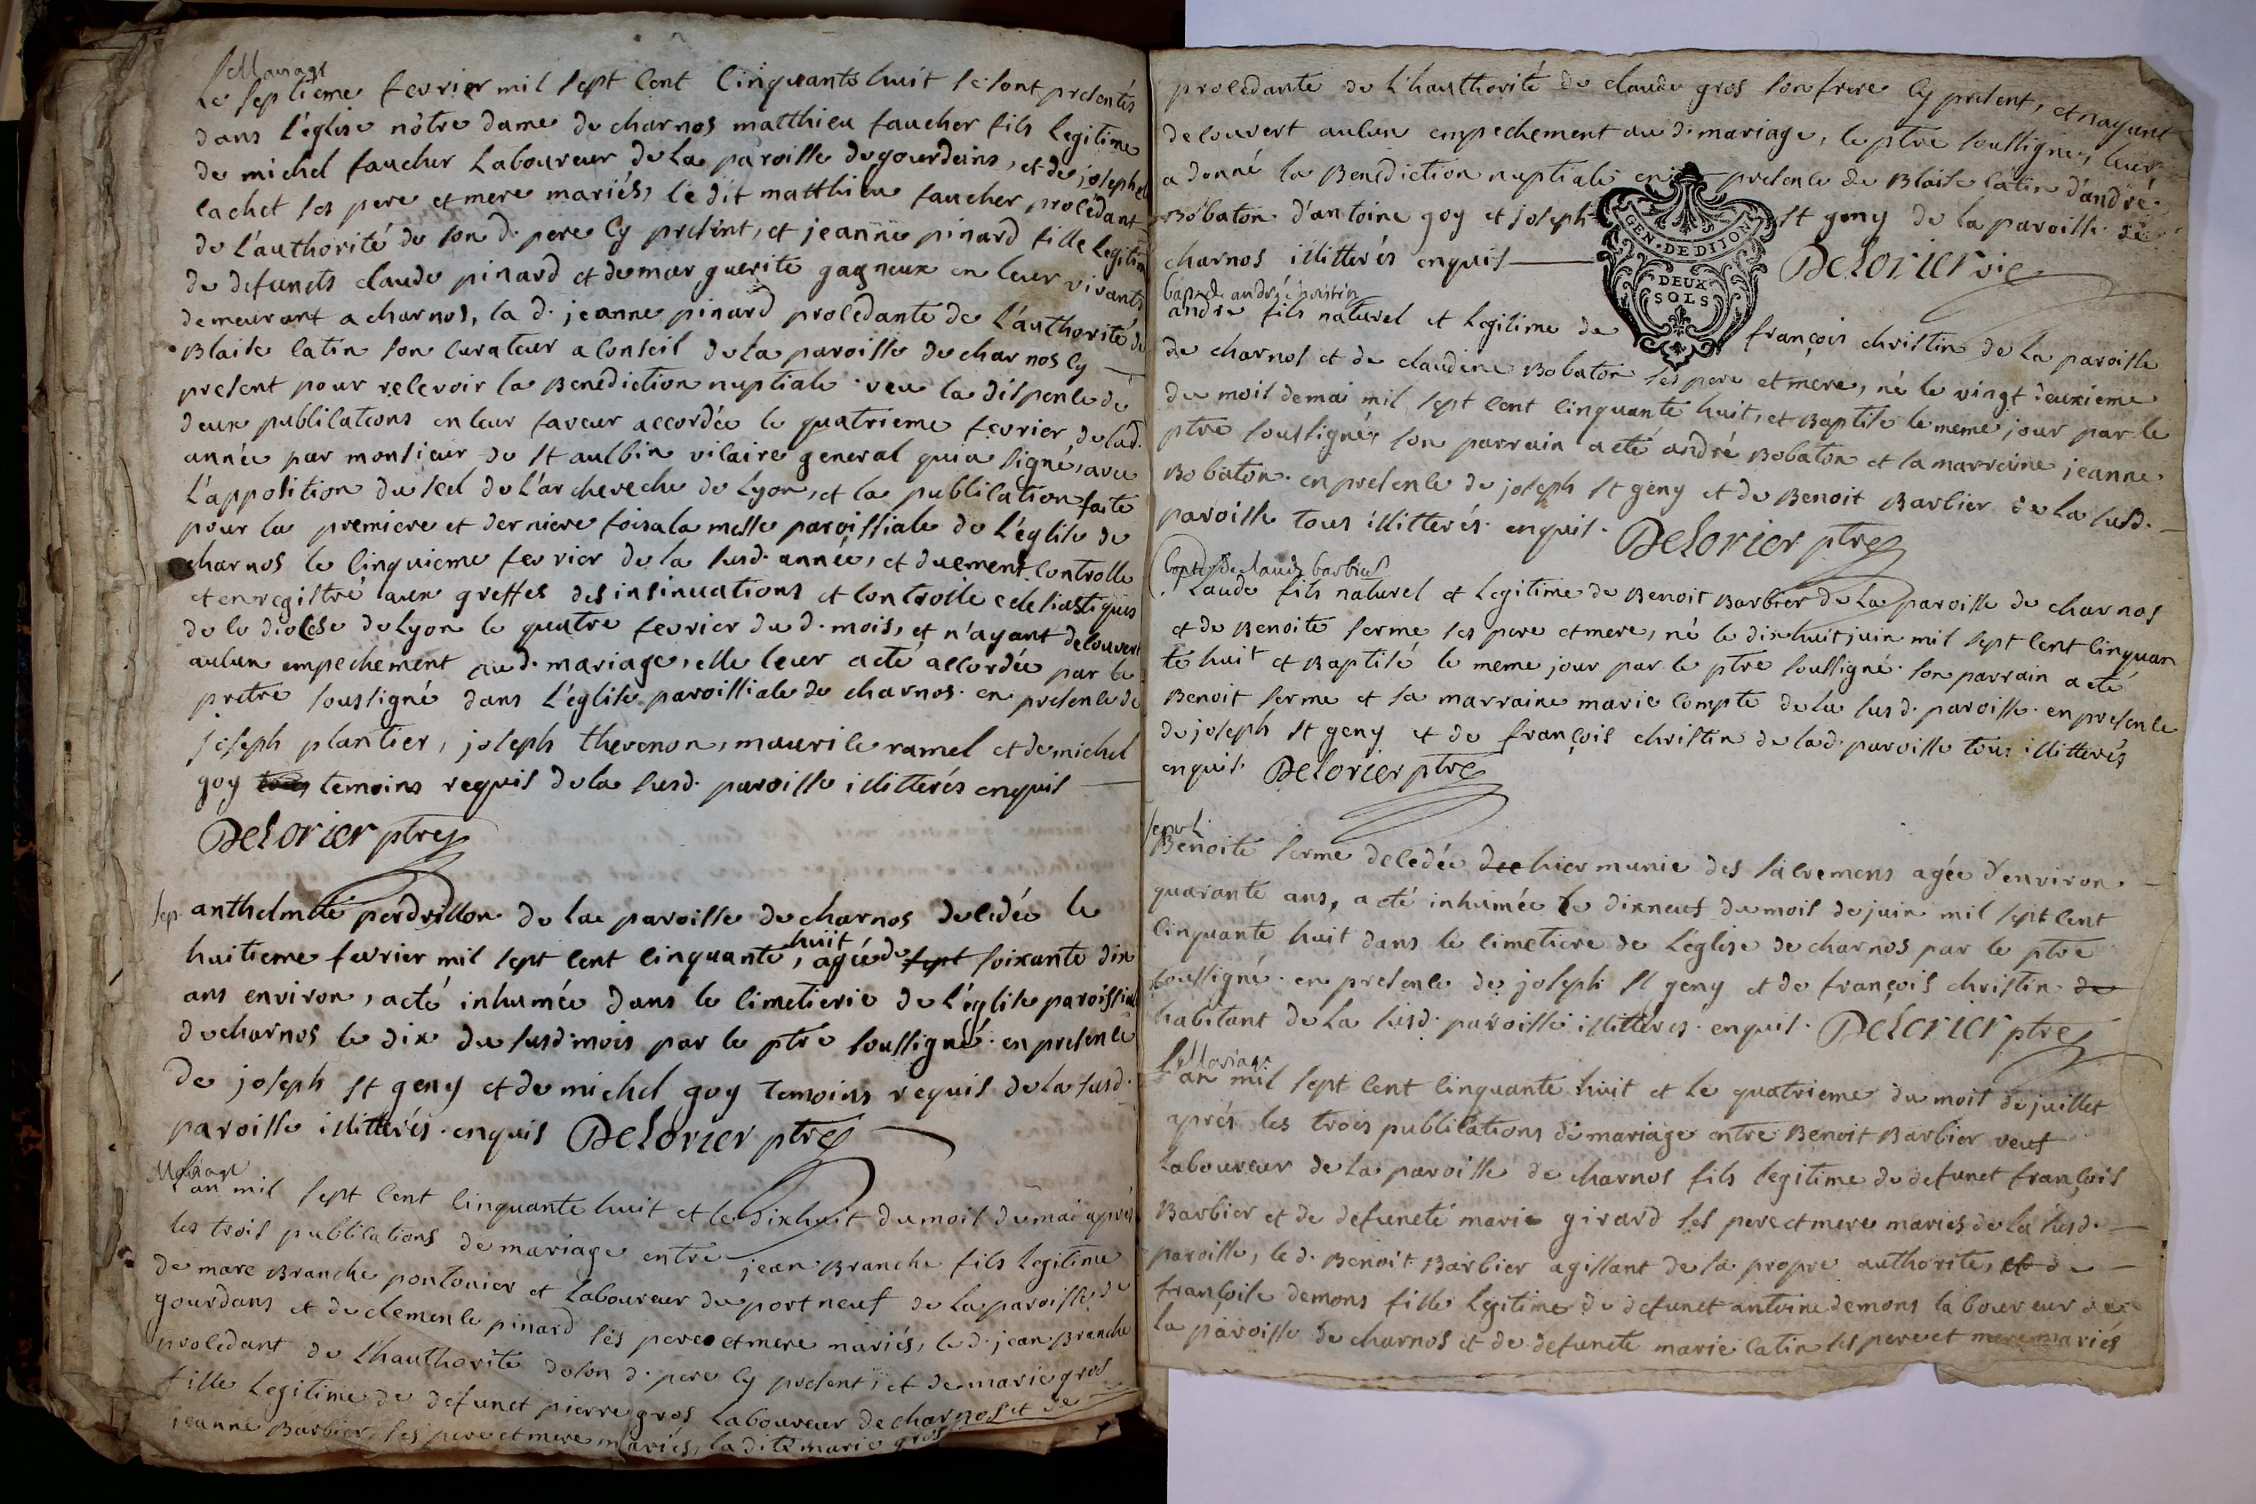 Mariage
Le septieme fevrier mil sept cent cinquante huit se sont presentés
dans l'église nôtre dame de charnos matthieu faucher fils legitime
de michel faucher laboureur de la paroisse de gourdans, et de josephe
cachet ses pere et mere mariés, le dit matthieu faucher procedant
de l'authorité de son d. pere cy present, et jeanne pinard fille legitim
de defuncts claude pinard et de marguerite gagneux en leur vivants
demeurant a charnos, la d. jeanne pinard procedante de l'authorité de
Blaise catin son curateur a conseil de la paroisse de charnos cy
present pour recevoir la Benediction nuptiale. veu la dispense de
deux publications en leur faveur accordée le quatrieme fevrier de lad.
année par monsieur de st aulbin vicaire general qui a signé, avec
l'apposition du seel de l'archeveche de Lyon, et la publication faite
pour la premiere et derniere fois a la messe paroissiale de l'église de
charnos le cinquieme fevrier de la susd. année, et duement controlle
et enregistré aux greffes des insinuations et controlle eclesiastiques
de le diocese de Lyon le quatre fevrier du d. mois, et n'ayant decouvert
aucun empechement au d. mariage, elle leur a eté accordée par le
pretre soussigné dans l'église paroissiale de charnos. en presence de
joseph plantier, joseph thevenon, maurice ramel et de michel
goy temoins requis de la susd. paroisse illitterés enquis
Delorier ptre
sep
anthelmette perdrillon de la paroisse de charnos decedée le
huitieme fevrier mil sept cent cinquante huit, agée de sept soixante dix
ans environ, a eté inhumée dans le cimetierie de l'église paroissial
de charnos le dix du susd. mois par le ptre soussigné. en presence
de joseph st geny et de michel goy temoins requis de la susd.
paroisse illitterés. enquis Delorier ptre
Mariage
L'an mil sept cent cinquante huit et le dixhuit du mois de mai aprés
les trois publications de mariage entre jean Branche fils legitime
de marc Branche pontonier et laboureur du port neuf de la paroisse de
gourdans et de clemence pinard ses pere et mere mariés, le d. jean Branche
procedant de l'hauthorité de son d. pere cy present, et de marie gros
fille legitime de defunct pierre gros laboureur de charnos et de
jeanne Barbier ses pere et mere mariés, la dite marie gros
procedante de l'hauthorité de claude gros son frere cy present, et n'ayant
decouvert aucun empechement au d. mariage, le ptre soussigné, leur
a donné la Benediction nuptiale en presence de Blaise catin d'andré
Bobaton d'antoine goy et joseph st geny de la paroisse de
charnos illitterés enquis Delorier vic
GEN. DE DIJON
DEUX
SOLS
bap. de andré cristin
andre fils naturel et legitime de françois christin de la paroisse
de charnos et de claudine Bobaton ses pere et mere, né le vingt deuxieme
du mois de mai mil sept cent cinquante huit, et Baptisé le meme jour par le
ptre soussigné, son parrain a eté andré Bobaton et la marreine jeanne
Bobaton. en presence de joseph st geny et de Benoit Barbier de la susd.
paroisse tous illitterés. enquis. Delorier ptre
bapt. de claude barbier
Claude fils naturel et legitime de Benoit Barbier de la paroisse de charnos
et de Benoite ferme ses pere et mere, né le dix huit juin mil sept cent cinquan
te huit et Baptisé le meme jour par le ptre soussigné. son parrain a eté
Benoit ferme et sa marraine marie compte de la susd. paroisse. en presence
de joseph st geny et de françois christin de la d. paroisse tous illitterés
enquis. Delorier ptre
sepul.
Benoite ferme decedée hier munie des sacremens agée d'environ
quarante ans, a eté inhumée le dixneuf du mois de juin mil sept cent
cinquante huit dans le cimetiere de l'église de charnos par le ptre
soussigné. en presence de joseph st geny et de françois christin de
habitant de la susd. paroisse illitterés. enquis. Delorier ptre
Mariage
L'an mil sept cent cinquante huit et le quatrieme du mois de juillet
aprés les trois publications de mariage entre Benoit Barbier veuf
laboureur de la paroisse de charnos fils legitime de defunct françois
Barbier et de defuncte marie girard ses pere et mere mariés de la susd.
paroisse, le d. Benoit Barbier agissant de sa propre authorité, et de
françoise demons fille legitime de defunct antoine demons laboureur de
la paroisse de charnos et de defuncte marie catin ses pere et mere mariés